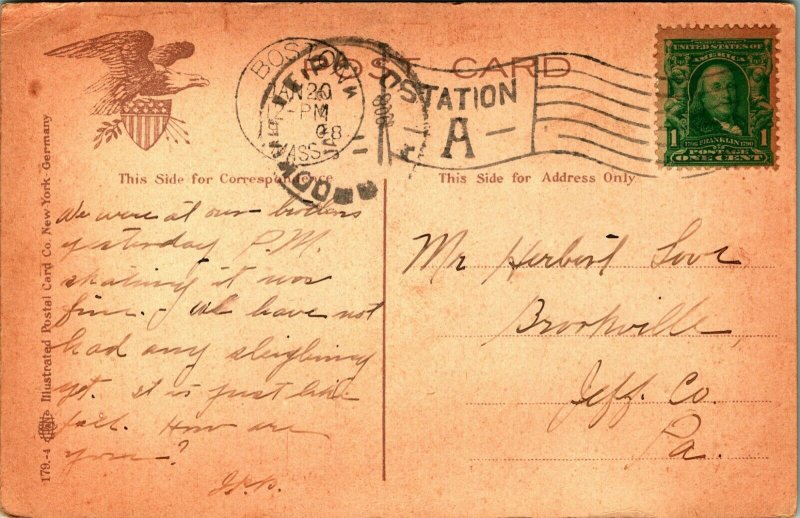 POST CARD
BOSTON
20
PM
08
MASS.
STATION
A
UNITED STATES OF
AMERICA
1 1
FRANKLIN
POSTAGE
ONE CENT
This Side for Correspondence
This Side for Address Only
179.-4 Illustrated Postal Card Co. New-York-Germany
We were at our brothers
yesterday P.M.
skating it was
fine. - We have not
had any sleighing
yet. It is just like
fall. How are
you?
Mr Herbert Love
Brookville,
Jeff. Co.
Pa.